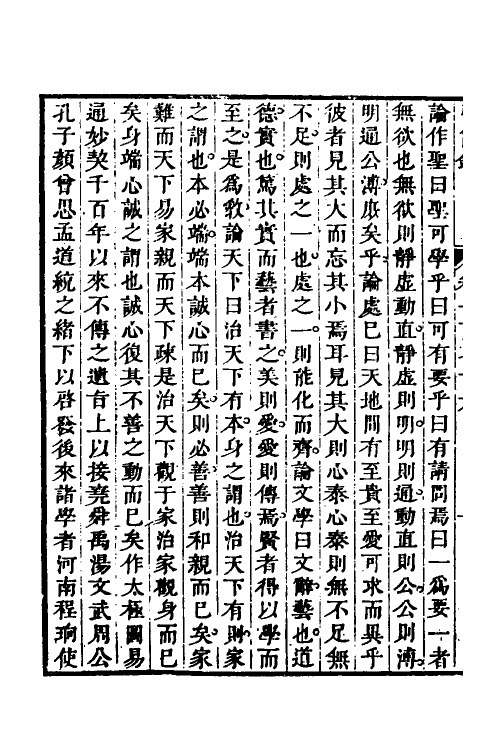 論作聖曰聖可學乎曰可有要乎曰有請問焉曰一爲要一者
無欲也無欲則靜虛動直靜虛則明明則通動直則公公則溥
明通公溥庶矣乎論處已曰天地間有至貴至愛可求而異乎
彼者見其大而忘其小焉耳見其大則心泰心泰則無不足無
不足則處之一也處之一則能化而齊論文學曰文辭藝也道
德實也篤其實而藝者書之美則愛愛則傳焉賢者得以學而
至之是爲敎論天下曰治天下有本身之謂也治天下有則家
之謂也本必端端本誠心而已矣則必善善則和親而已矣家
難而天下易家親而天下疎是治天下觀于家治家觀身而已
矣身端心誠之謂也誠心復其不善之動而已矣作太極圖易
通妙契千百年以來不傳之遺旨上以接堯舜禹湯文武周公
孔子顏曾思孟道統之緒下以啓發後來諸學者河南程珦使